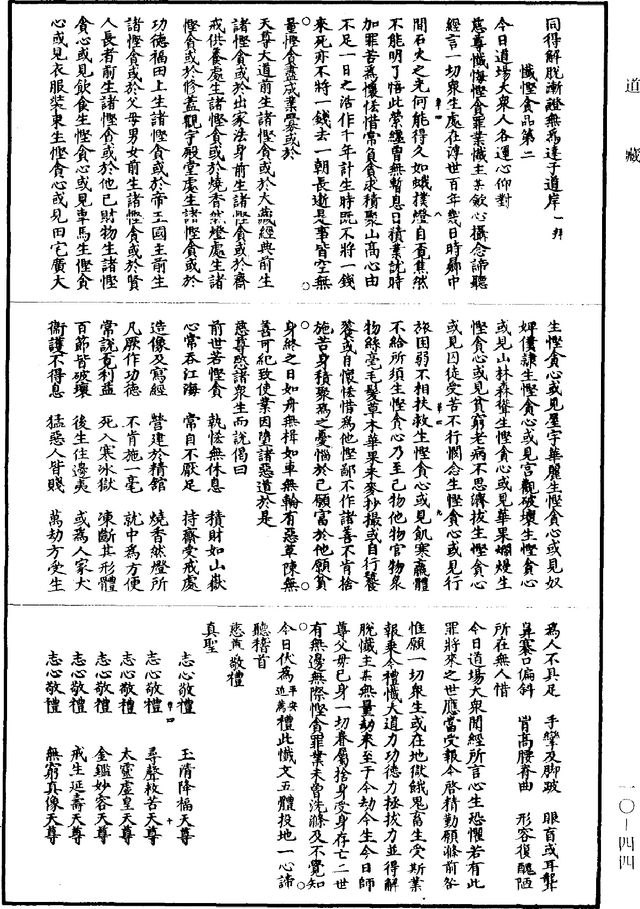 道藏
同得解脫漸證無為逹于道岸一拜
懺慳食品第二
今日道場大衆人各運心仰對
慈尊懺悔慳貪罪業懺主某歛心攝念諦聽
經言一切衆生處在浮世百年幾日時鄰中
間石火之光何能得久如蛾撲燈自覔焦然
不能明了悟此縈纏曾無暫息日積業訧時
加罪苦為慳恡惜常貪貪求積聚山高心由
不足一日之活作千年計生時旣不將一錢
來死亦不將一錢去一朝長逝是事皆空無
量慳貪盡成業累或於
天尊大道前生諸慳貪或於大藏經典前生
諸慳貪或於出家法身前生諸慳貪或於齋
戒供養處生諸慳貪或於燒香然燈處生諸
慳貪或於修葢觀宇殿堂處生諸慳貪或於
功德福田上生諸慳貪或於帝王國主前生
諸慳貪或於父母男女前生諸慳貪或於賢
人長者前生諸慳貪或於他己財物生諸慳
貪心或見飲食生慳貪心或見車馬生慳貪
心或見衣服裝束生慳貪心或見田宅廣大
生慳貪心或見屋宇華麗生慳貪心或見奴
婢僕隷生慳貪心或見宫觀破壞生慳貪心
或見山林森聳生慳貪心或見華果爛熳生
慳貪心或見貧窮老病不思濟拔生慳貪心
或見囚徒受苦不行憫念生慳貪心或見行
旅困弱不相扶救生慳貪心或見飢寒羸體
不給所須生慳貪心乃至己物他物官物衆
物絲毫毛髮草木華果米麥抄撮或自行饕
餮或自懷恡惜為他慳鄙不作諸善不肯捨
施苦身積聚為之憂惱於己願富於他願貧
身終之日如舟無楫如車無輪有惡草陳無
善可紀致使業因隨諸惡道於是
慈尊愍諸衆生而說偈曰
前世若慳貪　執恡無休息　積財如山嶽
心常吞江海　常自不厭足　持齋受戒處
造像及寫經　營建於精館　燒香然燈所
凡厥作功德　不肯施一毫　就中為方便
常說覔利益　死入寒冰獄　凍斷其形體
百節皆破壞　後生住邊夷　或為人家犬
衞護不得息　猛惡人皆賤　萬劫方受生
為人不具足　手攣及脚跛　眼盲或耳聾
鼻塞口偏斜　胷高腰脊曲　形容復醜陋
所在無人惜
今日道場大衆聞經所言心生恐懼若有此
罪將來之世應當受報今啓精勤願滌前咎
惟願一切衆生或在地獄餓鬼畜生受斯業
報乗今禮懺大道力功德力極拔力並得解
脫懺主某無量劫來至于今劫今生今日師
尊父母己身一切眷屬捨身受身存亡二世
有無邊無際慳貪罪業未曾洗滌及不覺知
今日伏為平安追薦禮此懺文五體投地一心諦
聽稽首
慈真敬禮
真聖
志心敬禮　玉清降福天尊
志心敬禮　尋聲救苦天尊
志心敬禮　太靈虛皇天尊
志心敬禮　金鑑妙容天尊
志心敬禮　戒生延壽天尊
志心敬禮　無窮真像天尊
一〇-四四